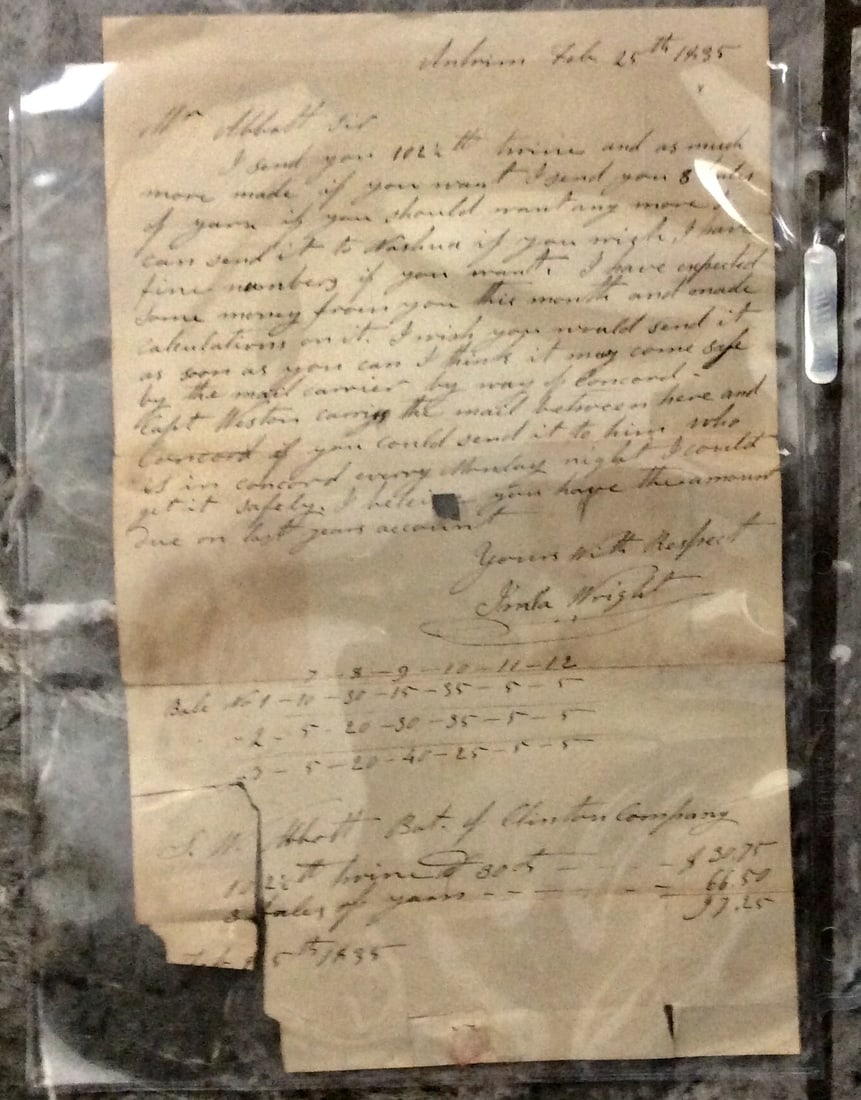 Antrim Feb 25th 1835
Mr Abbott Sir
I send you 102½ lb twine and as much
more made if you want I send you 8 bales
of yarn if you should want any more I
can send it to Nashua if you wish, I have
fine numbers if you want. I have expected
some money from you this month and made
calculations on it. I wish you would send it
as soon as you can I think it may come safe
by the mail carrier by way of Concord -
Capt Weston carrys the mail between here and
Concord if you could send it to him who
is in concord every Monday night I could
get it safely. I you have the amount
due on last years account
Yours With Respect
Imla Wright
7 - 8 - 9 - 10 - 11 - 12
Bale No 1 - 10 - 30 - 15 - 35 - 5 - 5
" 2 - 5 - 20 - 30 - 35 - 5 - 5
" 3 - 5 - 20 - 40 - 25 - 5 - 5
S. W. Abbott Bot. of Clinton Company
102½ lb twine @ 30 cts - - - - $ 30.75
bales of yarn - - - - - 66.50
97.25
Feb 25th 1835